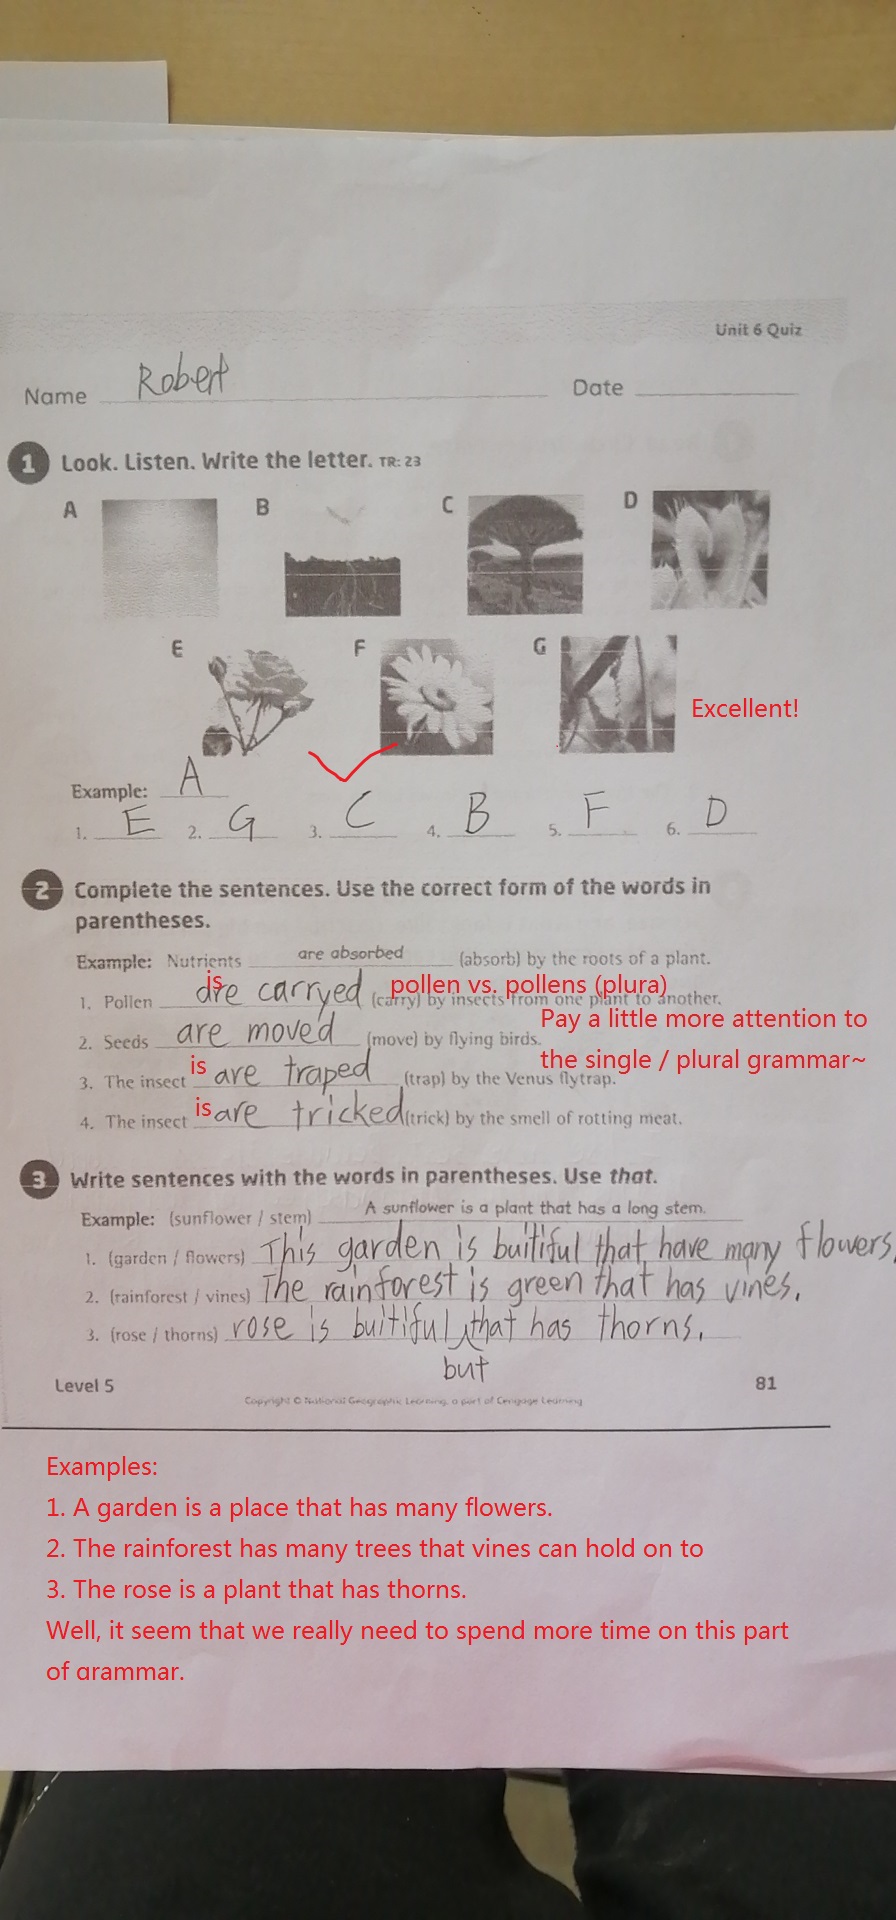 Unit 6 Quiz
Name Robert Date
1 Look. Listen. Write the letter. TR: 23
A B C D
E F G
Excellent!
Example: A
1. E 2. G 3. C 4. B 5. F 6. D
2 Complete the sentences. Use the correct form of the words in
parentheses.
Example: Nutrients are absorbed (absorb) by the roots of a plant.
is pollen vs. pollens (plura)
1. Pollen are carryed (carry) by insects from one plant to another.
Pay a little more attention to
2. Seeds are moved (move) by flying birds.
the single / plural grammar~
3. The insect is are traped (trap) by the Venus flytrap.
4. The insect is are tricked (trick) by the smell of rotting meat.
3 Write sentences with the words in parentheses. Use that.
Example: (sunflower / stem) A sunflower is a plant that has a long stem.
1. (garden / flowers) This garden is buitiful that have many flowers.
2. (rainforest / vines) The rainforest is green that has vines.
3. (rose / thorns) rose is buitiful that has thorns.
but
Level 5 81
Copyright © National Geographic Learning, a part of Cengage Learning
Examples:
1. A garden is a place that has many flowers.
2. The rainforest has many trees that vines can hold on to
3. The rose is a plant that has thorns.
Well, it seem that we really need to spend more time on this part
of grammar.